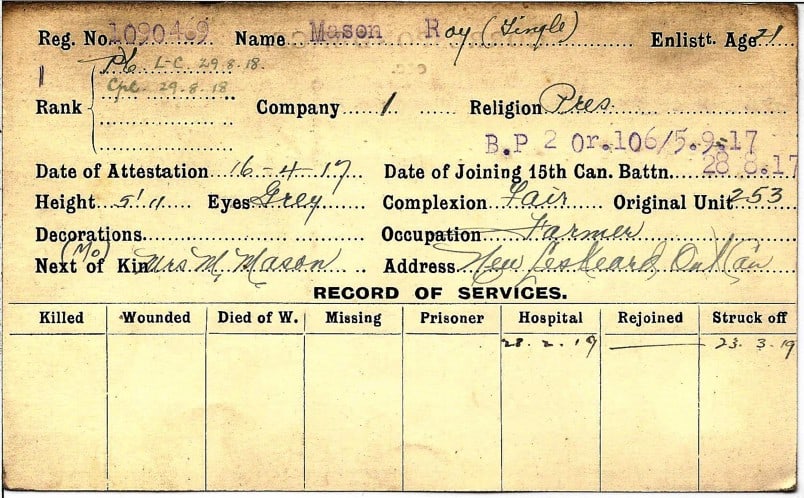 Reg. No. 1090469 Name Mason Roy (Single) Enlistt. Age 21
1
Pte L-C. 29.8.18.
Cpl. 29.8.18
Rank Company 1 Religion Pres.
B.P 2 Or.106/5.9.17
Date of Attestation 16-4-17 Date of Joining 15th Can. Battn. 28 8.17
Height 5'11 Eyes Grey Complexion Fair Original Unit 253
Decorations Occupation Farmer
Next of Kin (Mo) Mrs M. Mason Address New Liskeard, Ont Can
RECORD OF SERVICES.
Killed Wounded Died of W. Missing Prisoner Hospital Rejoined Struck off
28.2.19 23.3.19